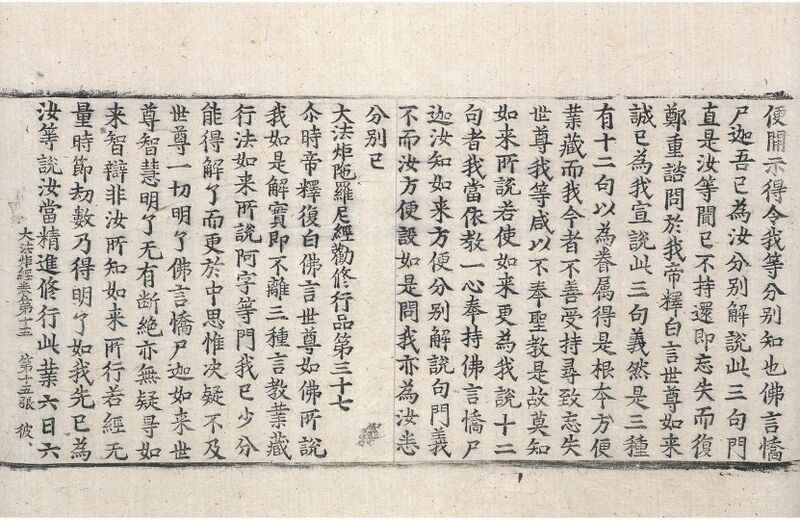 便開示得令我等分別知也佛言憍
尸迦吾已為汝分別解說此三句門
直是汝等聞已不持還即忘失而復
鄭重諮問於我帝釋白言世尊如來
誠已為我宣說此三句義然是三種
有十二句以為眷属得是根本方便
業藏而我今者不善受持尋致忘失
世尊我等咸以不奉聖教是故莫知
如来所說若使如来更為我說十二
句者我當依教一心奉持佛言憍尸
迦汝知如来方便分別解說句門義
不而汝方便設如是問我亦為汝悉
分別已
大法炬陁羅尼經勸修行品第三十七
尒時帝釋復白佛言世尊如佛所說
我如是解實即不離三種言教業藏
行法如来所說阿字等門我已少分
能得解了而更於中思惟决疑不及
世尊一切明了佛言憍尸迦如来世
尊智慧明了无有断絕亦無疑寻如
来智辯非汝所知如来所行若經无
量時節劫數乃得明了如我先已為
汝等說汝當精進修行此業六日六
大法炬經卷第十五 第十五張 彼